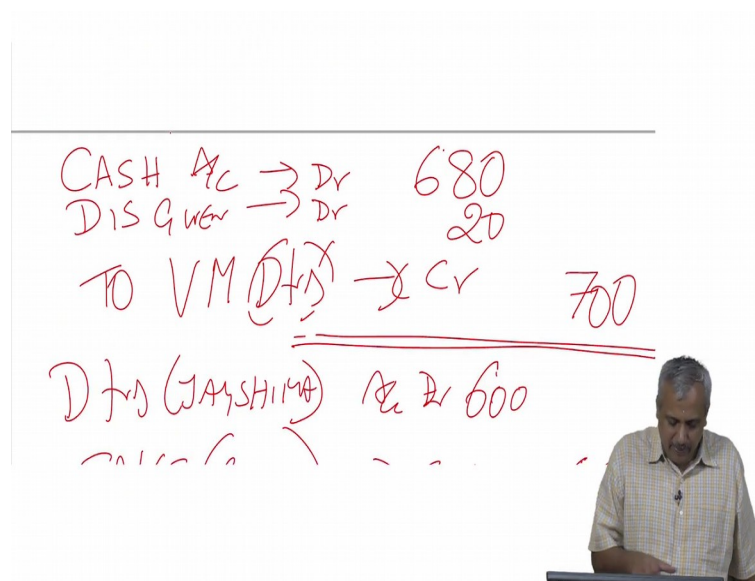 CASH A/c → Dr 680
DIS GIVEN → Dr 20
TO VM (Dtrs) → Cr 700
Dtrs (JAYSHIMA) A/c Dr 600